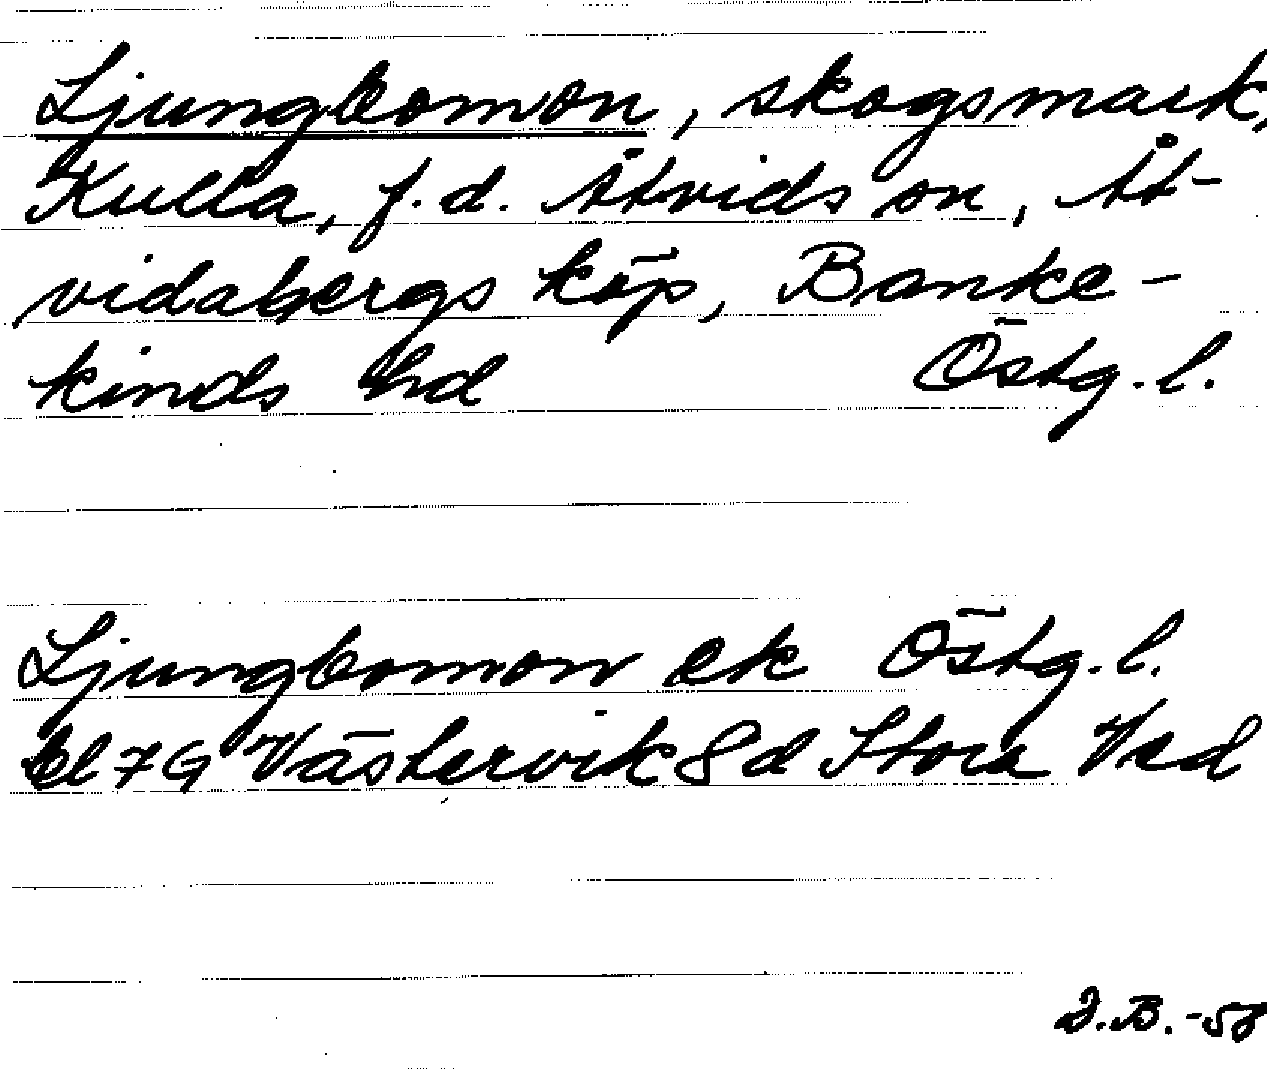 Ljungbomon, skogsmark,
Kulla, f.d. Åtvids sn, Åt-
vidabergs köp, Banke-
kinds hd Östg.l.
Ljungbomon ek Östg.l.
bl 7G Västervik 8d Stora Ved
B.-58